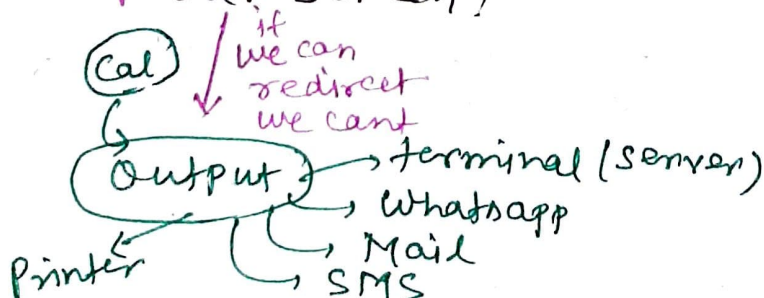 if
we can
redirect
we cant
Cal
Output
terminal (server)
Whatsapp
Mail
SMS
Printer